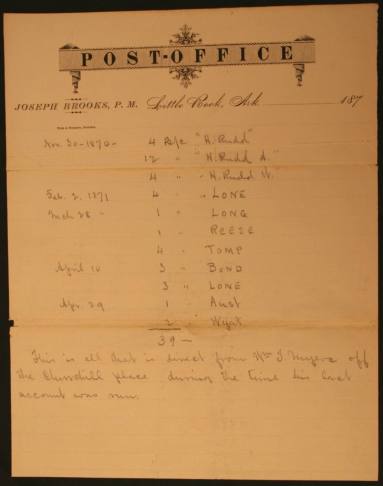 POST-OFFICE
JOSEPH BROOKS, P. M. Little Rock, Ark 187
Nov. 30 - 1870 - 4 B/c "H. Rudd"
12 " "H. Rudd A."
4 " " H. Rudd
Feb. 2. 1871 4 " " LONE
Mch 28 - 1 " LONG
1 " REESE
4 " TOMP
April 10 3 " BOND
3 " LONE
Apr. 29 1 " Aust
2 " Wyit
39 -
This is all that is direct from Wm I. Myers off
the Churchill place during the time his last
account was run.